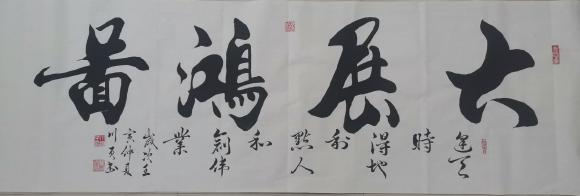 大展鴻啚
天時得地利點人和創偉業
歲次壬寅仲夏
川